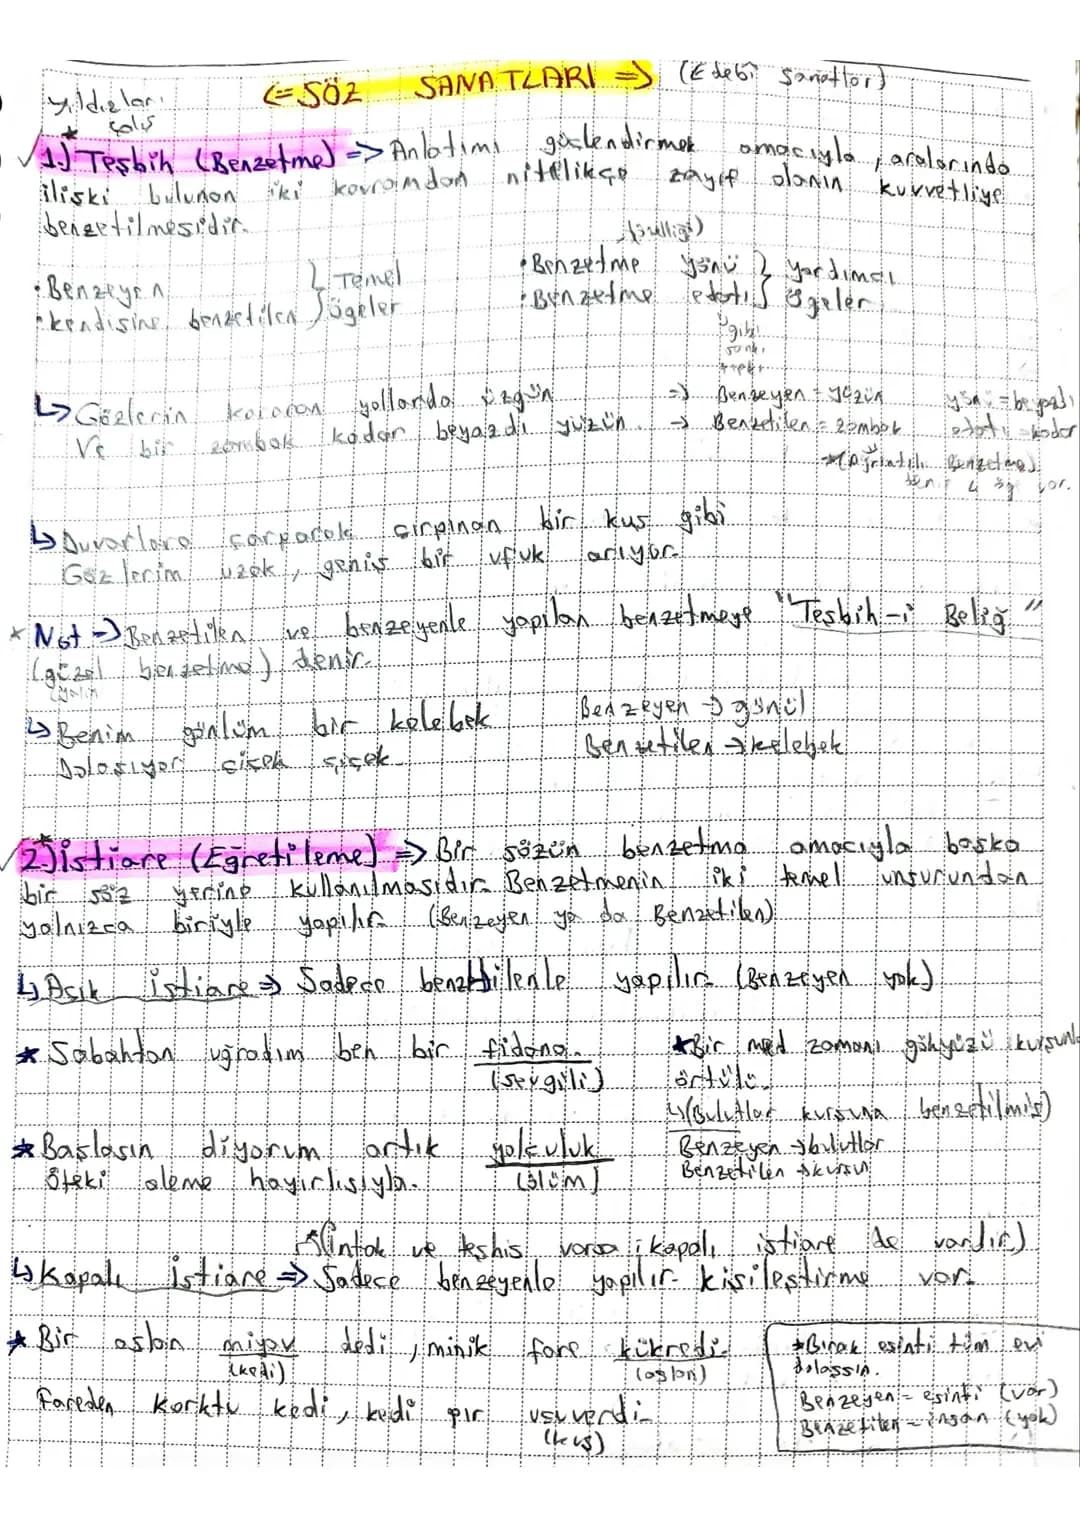 yıldızları
çalış
<= SÖZ SANATLARI => (Edebi Sanatlar)
1.) Teşbih (Benzetme) => Anlatımı güçlendirmek amacıyla, aralarında
ilişki bulunan iki kavramdan nitelikçe zayıf olanın kuvvetliye
benzetilmesidir.
• Benzeyen
• kendisine benzetilen } Temel öğeler
• Benzetme yönü
• Benzetme edatı } Yardımcı öğeler
gibi
sanki
↳ Gözlerin kararan yollarda üzgün
Ve bir zambak kadar beyazdı yüzün.
=> Benzeyen = yüzün
-> Benzetilen = zambak
yön = beyazdı
edatı = kadar
(Ayrıntılı Benzetme)
denir 4 öğe var.
↳ Duvarlara çarparak çırpınan bir kuş gibi
Gözlerim uzak, geniş bir ufuk arıyor.
* Not -> Benzetilen ve benzeyenle yapılan benzetmeye "Tesbih-i Beliğ"
(güzel benzetme) denir.
↳ Benim gönlüm bir kelebek
Dolaşıyor çiçek çiçek
Benzeyen -> gönül
Benzetilen -> kelebek
2) istiare (Eğretileme) => Bir sözün benzetme amacıyla başka
bir söz yerine kullanılmasıdır. Benzetmenin iki temel unsurundan
yalnızca biriyle yapılır. (Benzeyen ya da Benzetilen)
↳ Açık istiare => Sadece benzetilenle yapılır. (Benzeyen yok)
* Sabahtan uğradım ben bir fidana.
(sevgili)
* Başlasın diyorum artık yolculuk
(ölüm)
Öteki aleme hayırlısıyla.
* Bir med zamanı gökyüzü kurşunla
örtülü.
↳ (Bulutlar kurşuna benzetilmiş)
Benzeyen -> bulutlar
Benzetilen -> kurşun
(intak ve teşhis varsa ; kapalı istiare de vardır.)
↳ Kapalı istiare => Sadece benzeyenle yapılır. kişileştirme var.
* Bir aslan miyav dedi, minik fare kükredi.
(kedi)
(aslan)
Fareden korktu kedi, kedi pır uçuverdi.
(kuş)
* Bırak esinti tüm evi
dolaşsın.
Benzeyen = esinti (var)
Benzetilen = insan (yok)